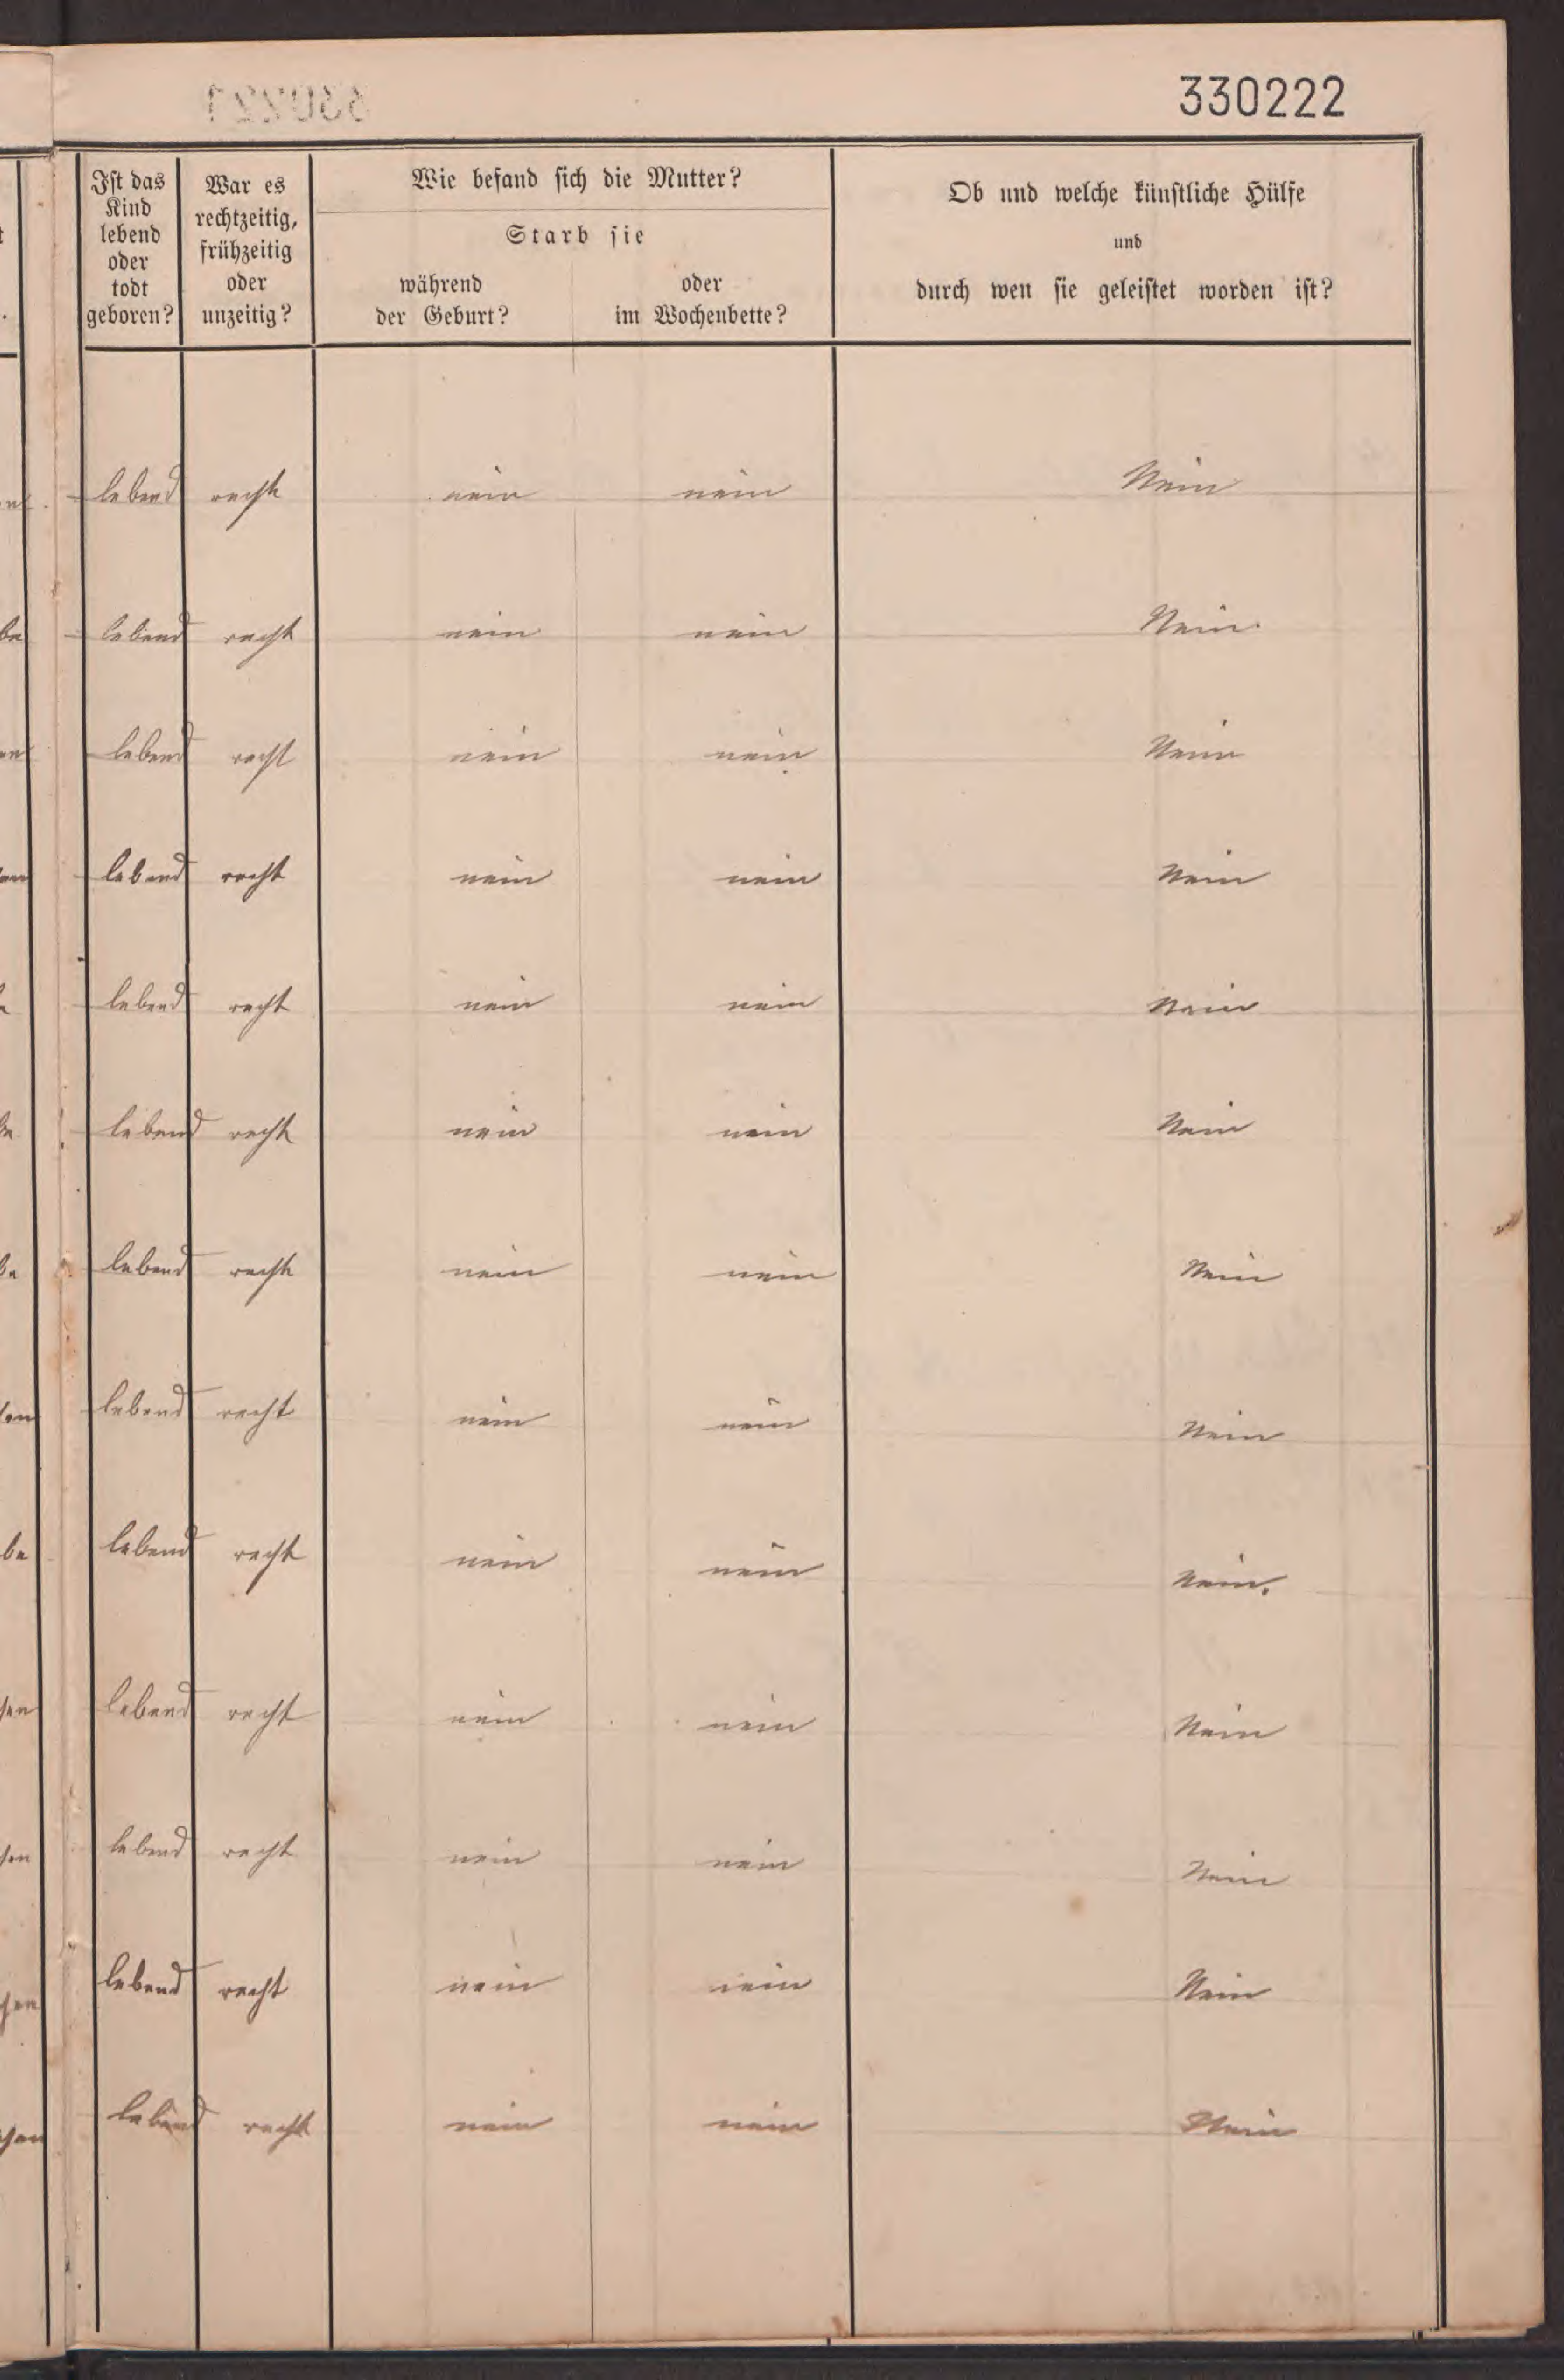 330222
Ist das Kind lebend oder todt geboren?
War es rechtzeitig, frühzeitig oder unzeitig?
Wie befand sich die Mutter?
Starb sie
während der Geburt?
oder im Wochenbette?
Ob und welche künstliche Hülfe
und
durch wen sie geleistet worden ist?
lebend recht nein nein Nein
lebend recht nein nein Nein.
lebend recht nein nein Nein
lebend recht nein nein Nein
lebend recht nein nein Nein
lebend recht nein nein Nein
lebend recht nein nein Nein
lebend recht nein nein Nein
lebend recht nein nein Nein.
lebend recht nein nein Nein
lebend recht nein nein Nein
lebend recht nein nein Nein
lebend recht nein nein Nein